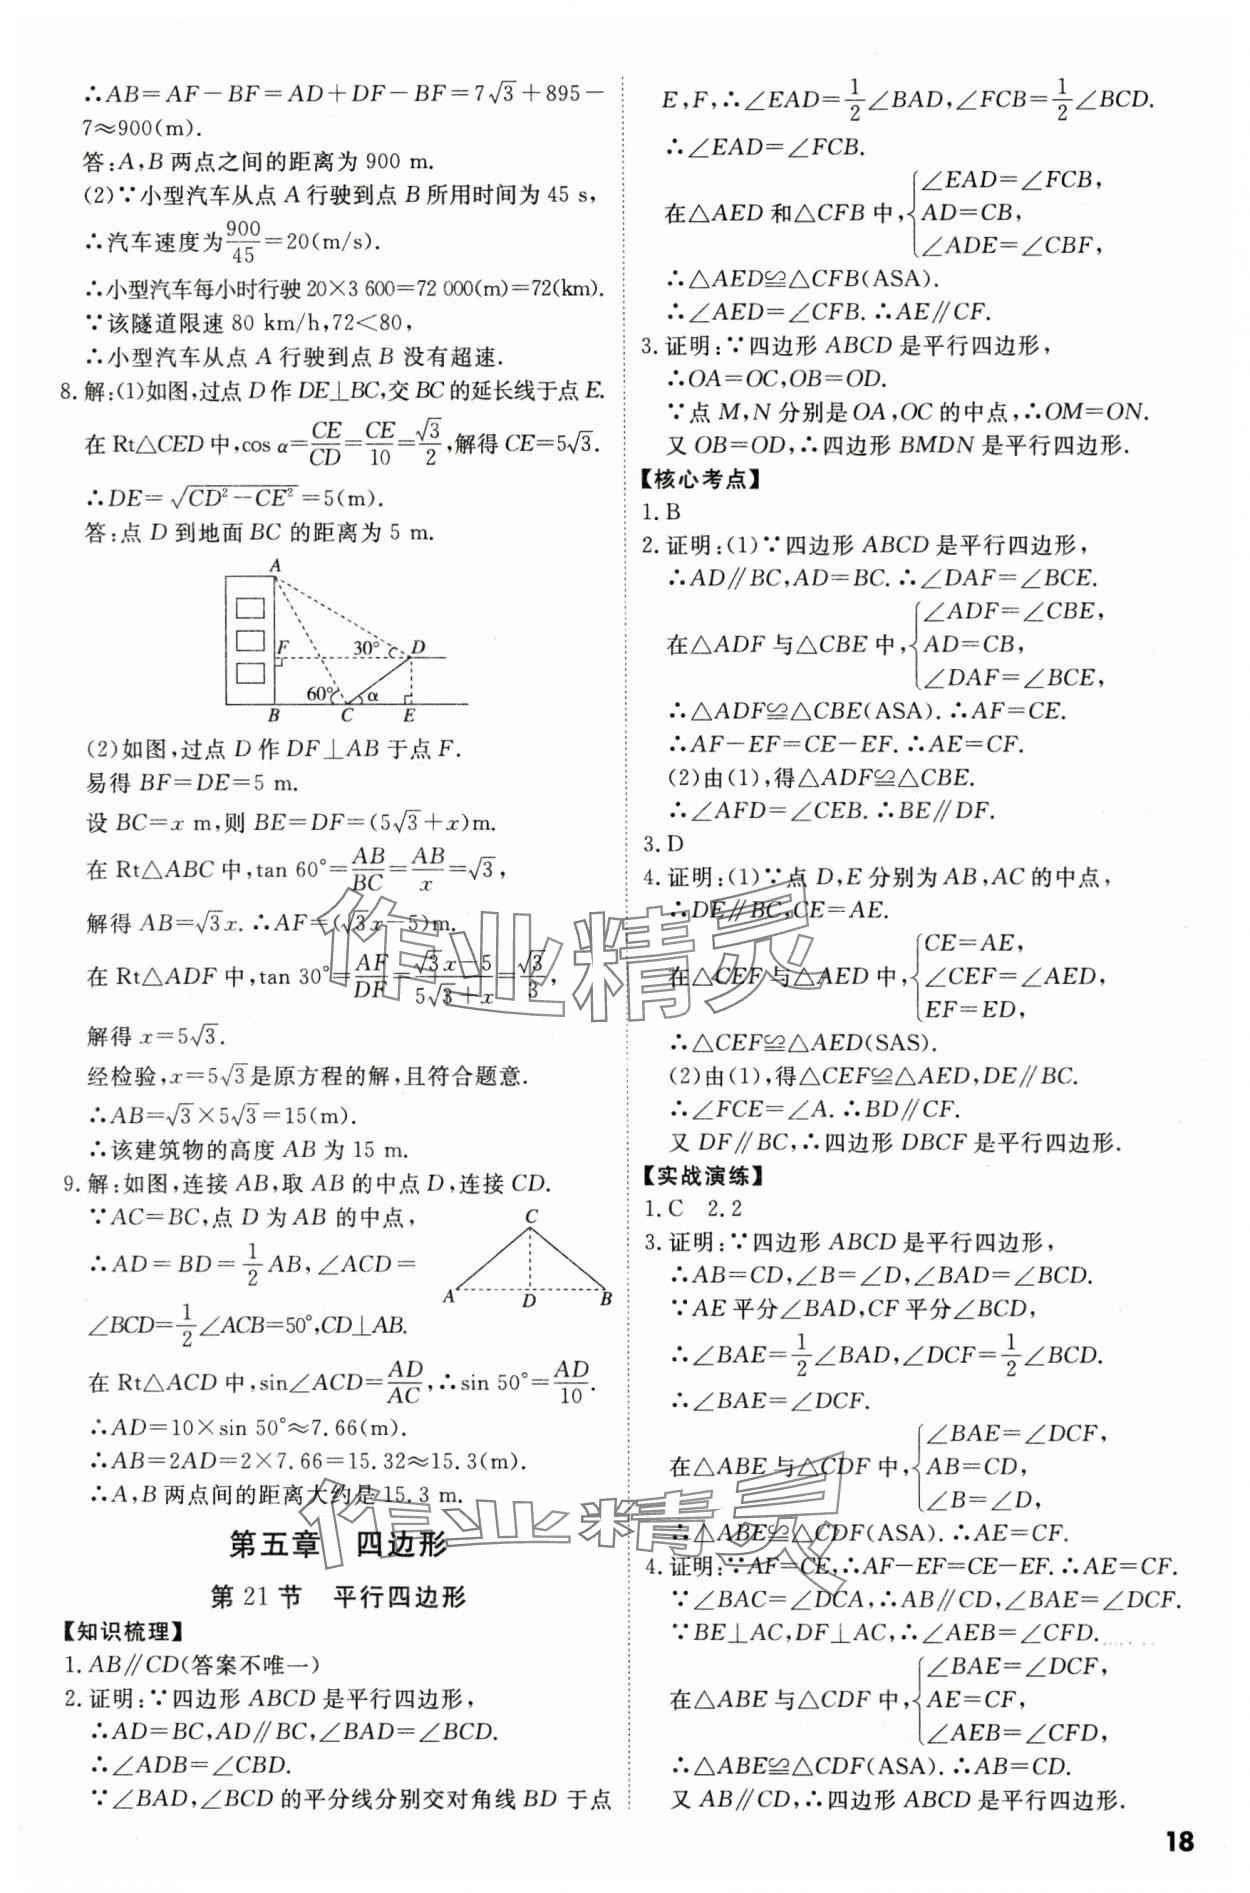 ∴AB=AF-BF=AD+DF-BF=7√3+895-
7≈900(m).
答:A,B 两点之间的距离为 900 m.
(2)∵小型汽车从点 A 行驶到点 B 所用时间为 45 s,
∴汽车速度为900/45=20(m/s).
∴小型汽车每小时行驶20×3 600=72 000(m)=72(km).
∵该隧道限速 80 km/h,72<80,
∴小型汽车从点 A 行驶到点 B 没有超速.
8.解:(1)如图,过点 D 作 DE⊥BC,交 BC 的延长线于点 E.
在 Rt△CED 中,cos α=CE/CD=CE/10=√3/2,解得 CE=5√3.
∴DE=√(CD²-CE²)=5(m).
答:点 D 到地面 BC 的距离为 5 m.
A
F
30°
D
60°
α
B
C
E
(2)如图,过点 D 作 DF⊥AB 于点 F.
易得 BF=DE=5 m.
设 BC=x m,则 BE=DF=(5√3+x)m.
在 Rt△ABC 中,tan 60°=AB/BC=AB/x=√3,
解得 AB=√3x.∴AF=(√3x-5)m.
在 Rt△ADF 中,tan 30°=AF/DF=(√3x-5)/(5√3+x)=√3/3,
解得 x=5√3.
经检验,x=5√3是原方程的解,且符合题意.
∴AB=√3×5√3=15(m).
∴该建筑物的高度 AB 为 15 m.
9.解:如图,连接 AB,取 AB 的中点 D,连接 CD.
∵AC=BC,点 D 为 AB 的中点,
∴AD=BD=1/2AB,∠ACD=
∠BCD=1/2∠ACB=50°,CD⊥AB.
C
A
D
B
在 Rt△ACD 中,sin∠ACD=AD/AC,∴sin 50°=AD/10.
∴AD=10×sin 50°≈7.66(m).
∴AB=2AD=2×7.66=15.32≈15.3(m).
∴A,B 两点间的距离大约是 15.3 m.
第五章 四边形
第 21 节 平行四边形
【知识梳理】
1.AB∥CD(答案不唯一)
2.证明:∵四边形 ABCD 是平行四边形,
∴AD=BC,AD∥BC,∠BAD=∠BCD.
∴∠ADB=∠CBD.
∵∠BAD,∠BCD 的平分线分别交对角线 BD 于点
E,F,∴∠EAD=1/2∠BAD,∠FCB=1/2∠BCD.
∴∠EAD=∠FCB.
∠EAD=∠FCB,
在△AED 和△CFB 中,{AD=CB,
∠ADE=∠CBF,
∴△AED≌△CFB(ASA).
∴∠AED=∠CFB.∴AE∥CF.
3.证明:∵四边形 ABCD 是平行四边形,
∴OA=OC,OB=OD.
∵点 M,N 分别是OA,OC 的中点,∴OM=ON.
又 OB=OD,∴四边形 BMDN 是平行四边形.
【核心考点】
1.B
2.证明:(1)∵四边形 ABCD 是平行四边形,
∴AD∥BC,AD=BC.∴∠DAF=∠BCE.
∠ADF=∠CBE,
在△ADF 与△CBE 中,{AD=CB,
∠DAF=∠BCE,
∴△ADF≌△CBE(ASA).∴AF=CE.
∴AF-EF=CE-EF.∴AE=CF.
(2)由(1),得△ADF≌△CBE.
∴∠AFD=∠CEB.∴BE∥DF.
3.D
4.证明:(1)∵点 D,E 分别为 AB,AC 的中点,
∴DE∥BC,CE=AE.
CE=AE,
在△CEF 与△AED 中,{∠CEF=∠AED,
EF=ED,
∴△CEF≌△AED(SAS).
(2)由(1),得△CEF≌△AED,DE∥BC.
∴∠FCE=∠A.∴BD∥CF.
又 DF∥BC,∴四边形 DBCF 是平行四边形.
【实战演练】
1.C 2.2
3.证明:∵四边形 ABCD 是平行四边形,
∴AB=CD,∠B=∠D,∠BAD=∠BCD.
∵AE 平分∠BAD,CF 平分∠BCD,
∴∠BAE=1/2∠BAD,∠DCF=1/2∠BCD.
∴∠BAE=∠DCF.
∠BAE=∠DCF,
在△ABE 与△CDF 中,{AB=CD,
∠B=∠D,
∴△ABE≌△CDF(ASA).∴AE=CF.
4.证明:∵AF=CE,∴AF-EF=CE-EF.∴AE=CF.
∵∠BAC=∠DCA,∴AB∥CD,∠BAE=∠DCF.
∵BE⊥AC,DF⊥AC,∴∠AEB=∠CFD.
∠BAE=∠DCF,
在△ABE 与△CDF 中,{AE=CF,
∠AEB=∠CFD,
∴△ABE≌△CDF(ASA).∴AB=CD.
又 AB∥CD,∴四边形 ABCD 是平行四边形.
18
作业精灵
作业精灵